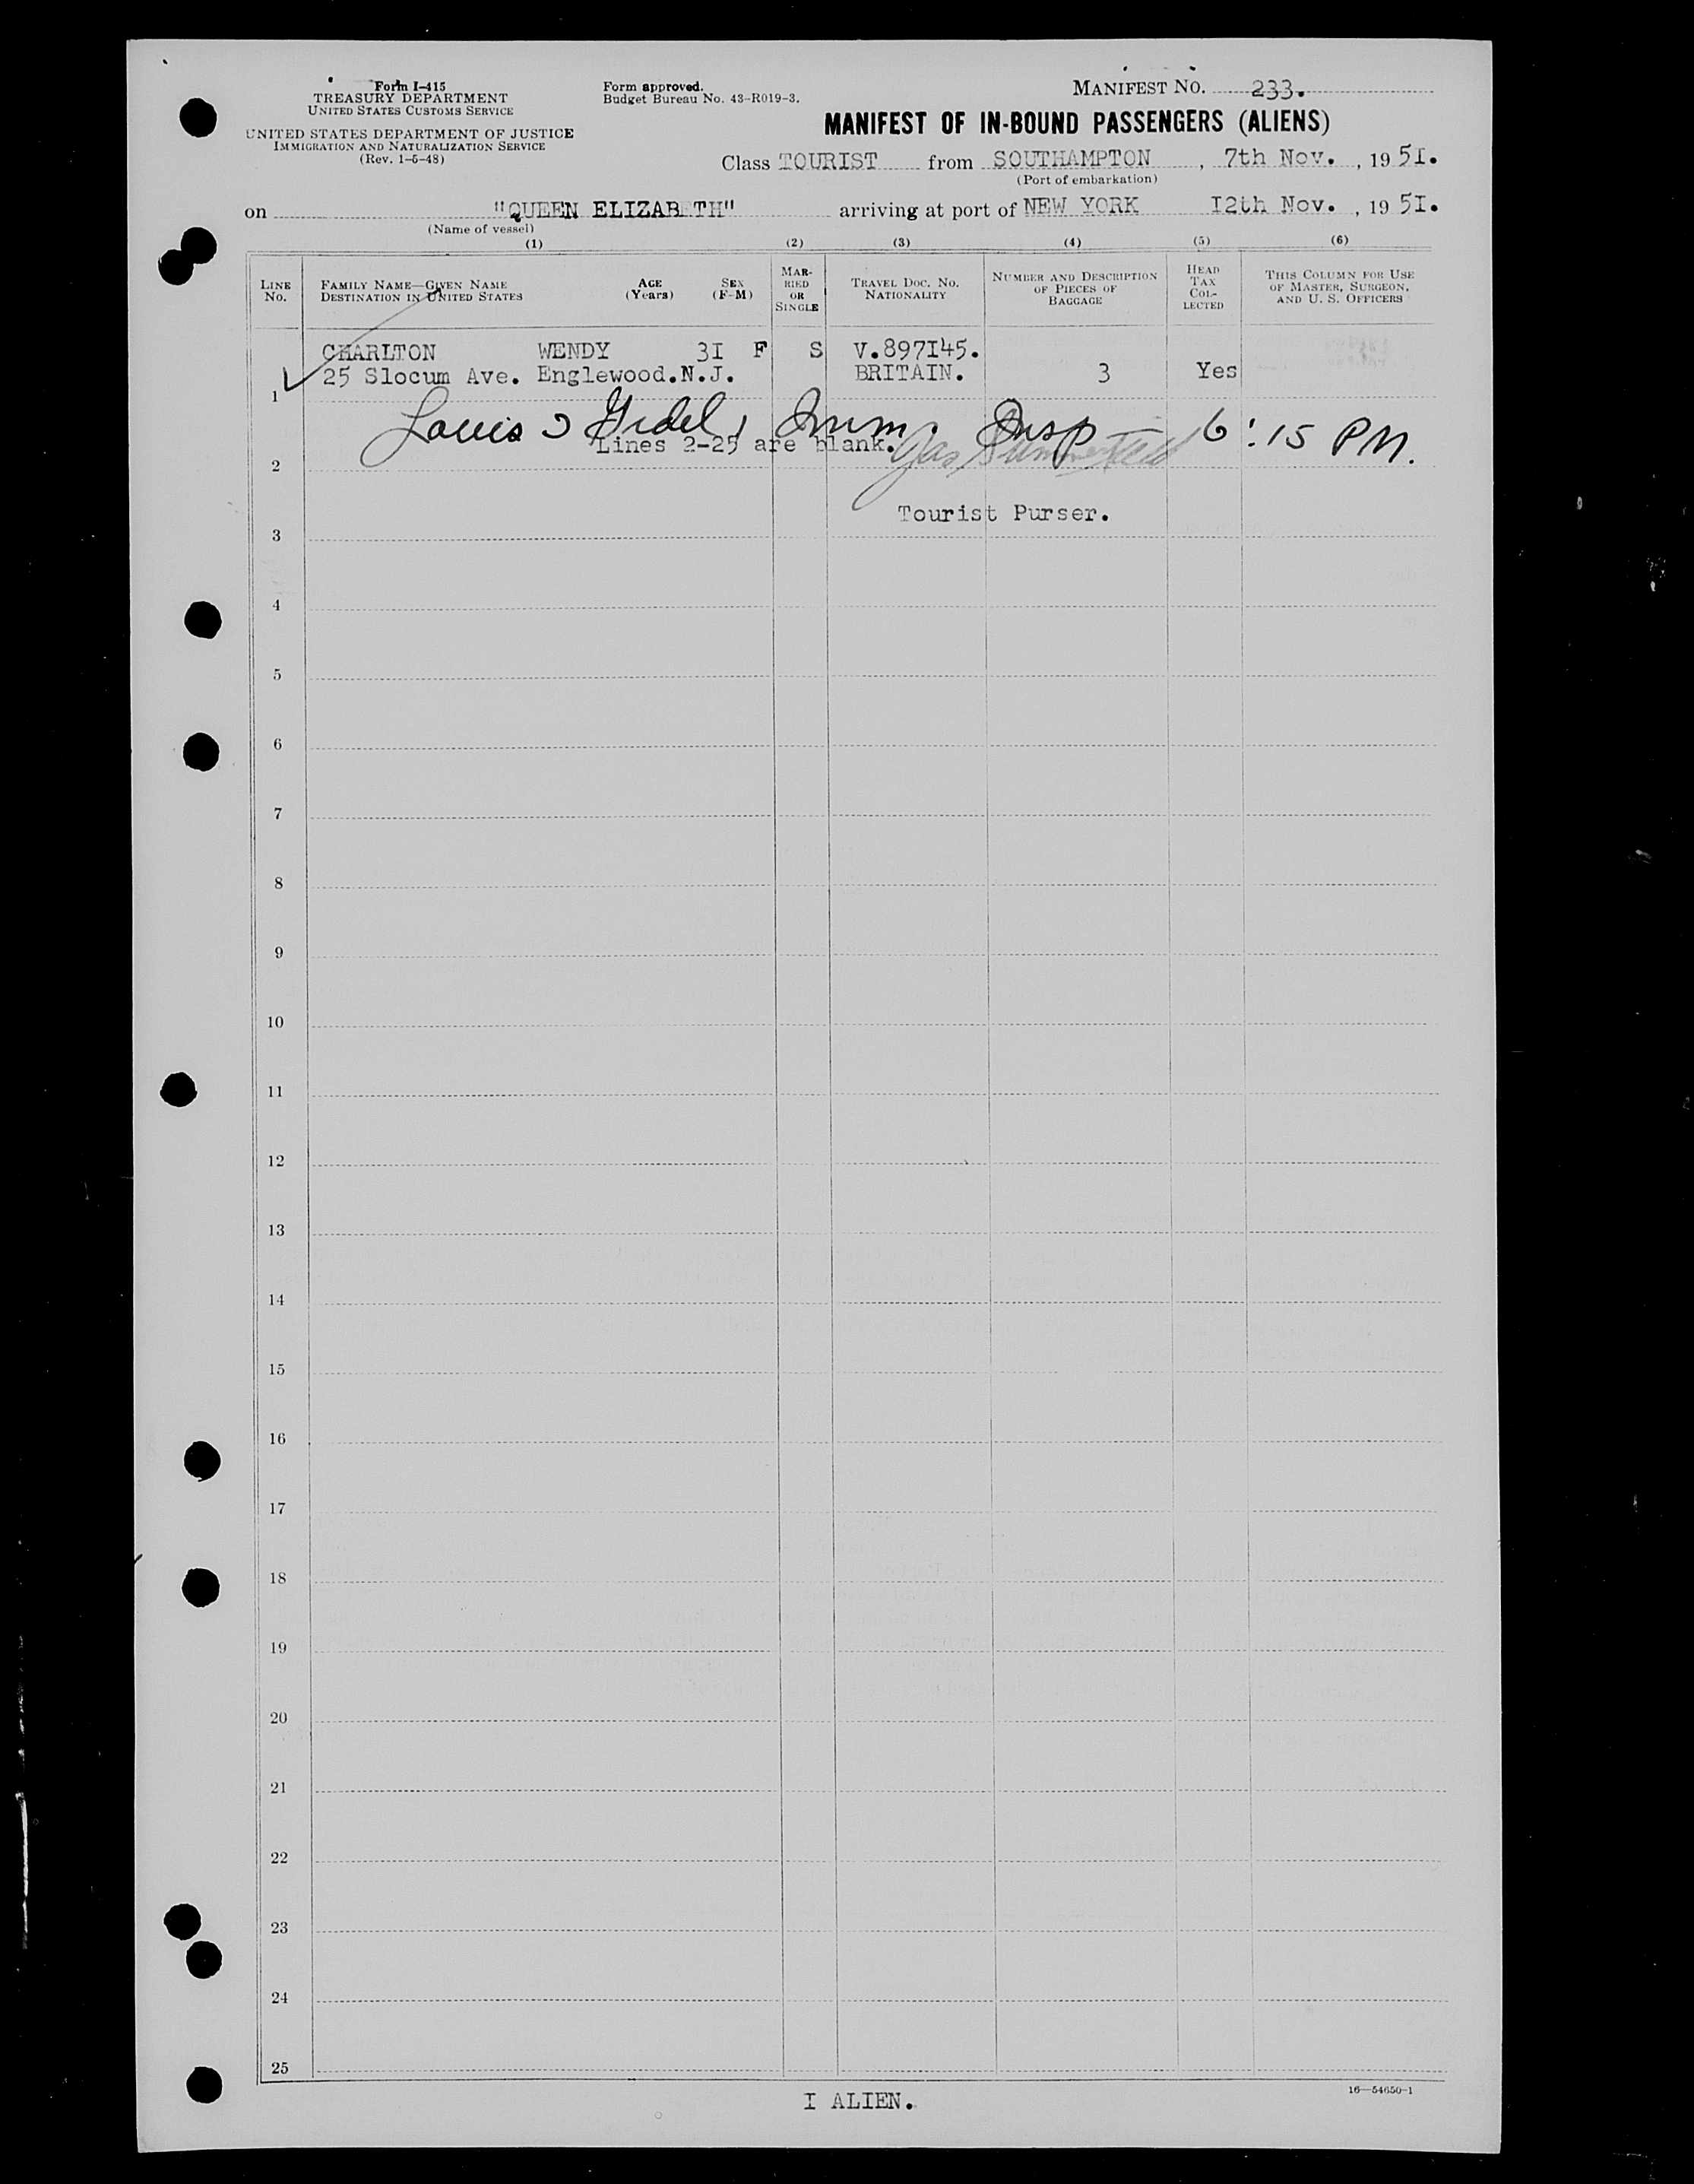 Form I-415
TREASURY DEPARTMENT
UNITED STATES CUSTOMS SERVICE
UNITED STATES DEPARTMENT OF JUSTICE
IMMIGRATION AND NATURALIZATION SERVICE
(Rev. 1-5-48)
Form approved.
Budget Bureau No. 43-R019-3.
MANIFEST NO. 233.
MANIFEST OF IN-BOUND PASSENGERS (ALIENS)
Class TOURIST from SOUTHAMPTON, 7th Nov., 1951.
(Port of embarkation)
on "QUEEN ELIZABETH" arriving at port of NEW YORK 12th Nov., 1951.
(Name of vessel)
(1) (2) (3) (4) (5) (6)
LINE NO.
FAMILY NAME—GIVEN NAME
DESTINATION IN UNITED STATES
AGE (Years)
SEX (F-M)
MARRIED OR SINGLE
TRAVEL DOC. NO. NATIONALITY
NUMBER AND DESCRIPTION OF PIECES OF BAGGAGE
HEAD TAX COLLECTED
THIS COLUMN FOR USE OF MASTER, SURGEON, AND U. S. OFFICERS
CHARLTON WENDY 3I F S V.897I45.
25 Slocum Ave. Englewood.N.J. BRITAIN. 3 Yes
1
Louis Imm. Insp 6:15 PM.
Lines 2-25 are blank.
2
Tourist Purser.
3
4
5
6
7
8
9
10
11
12
13
14
15
16
17
18
19
20
21
22
23
24
25
I ALIEN.
16—54650-1